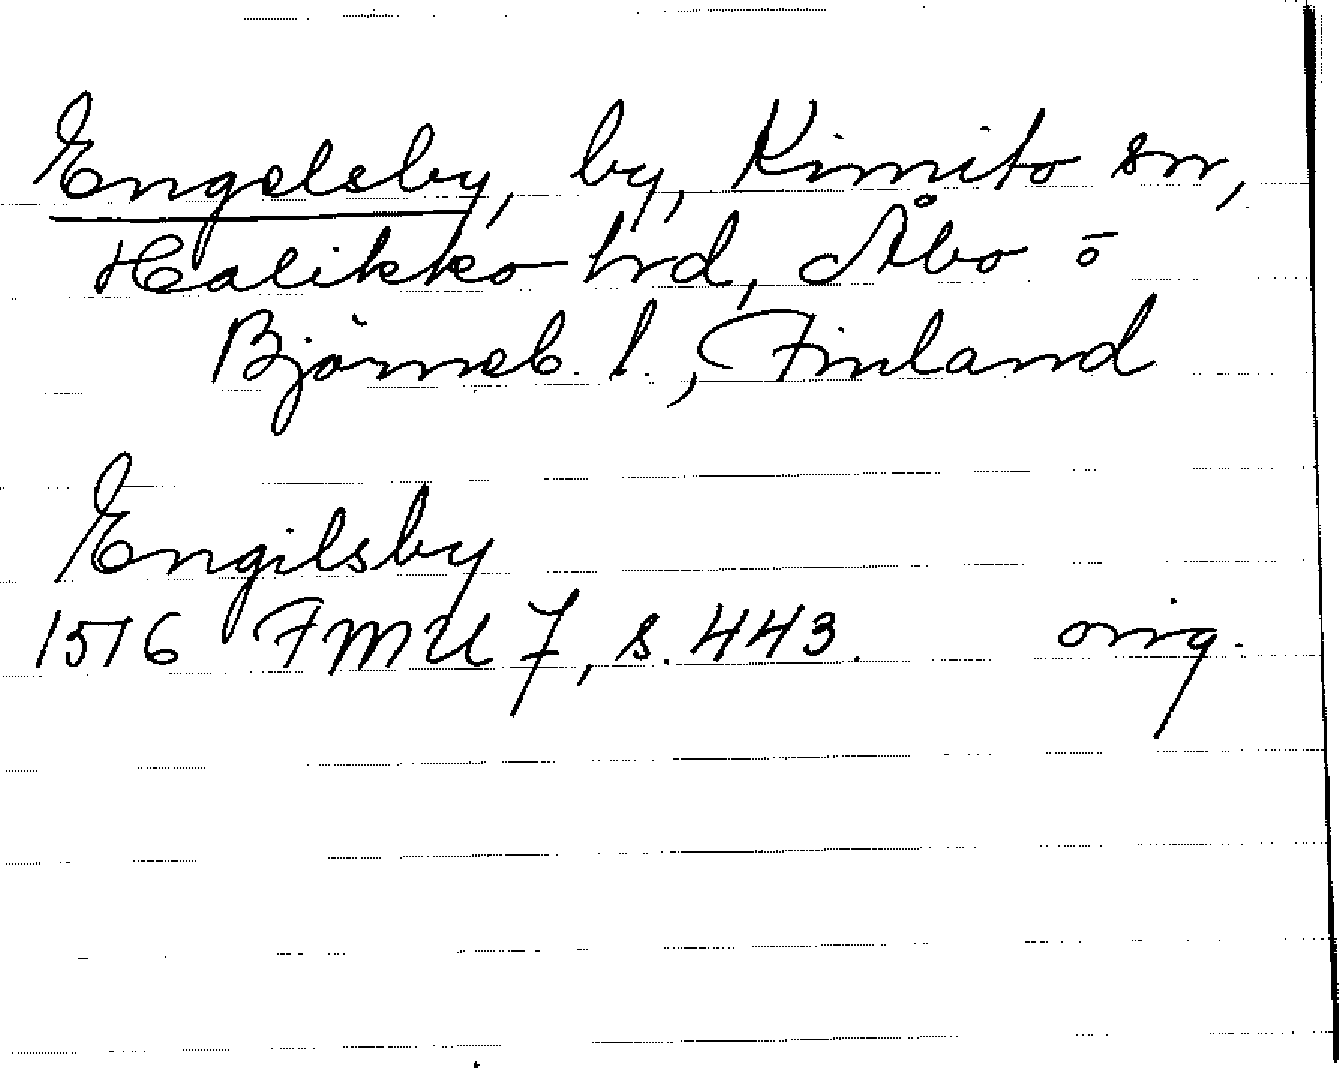 Engelsby, by, Kimito sn,
Halikko hrd, Åbo o
Björneb. l., Finland
Engilsby
1516 FMU 7, s. 443. orig.